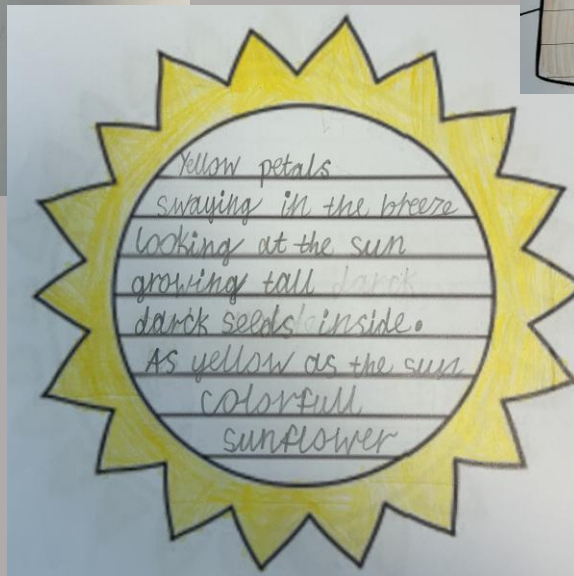 Yellow petals
swaying in the breeze
looking at the sun
growing tall
darck seeds inside.
As yellow as the sun
colorfull
sunflower